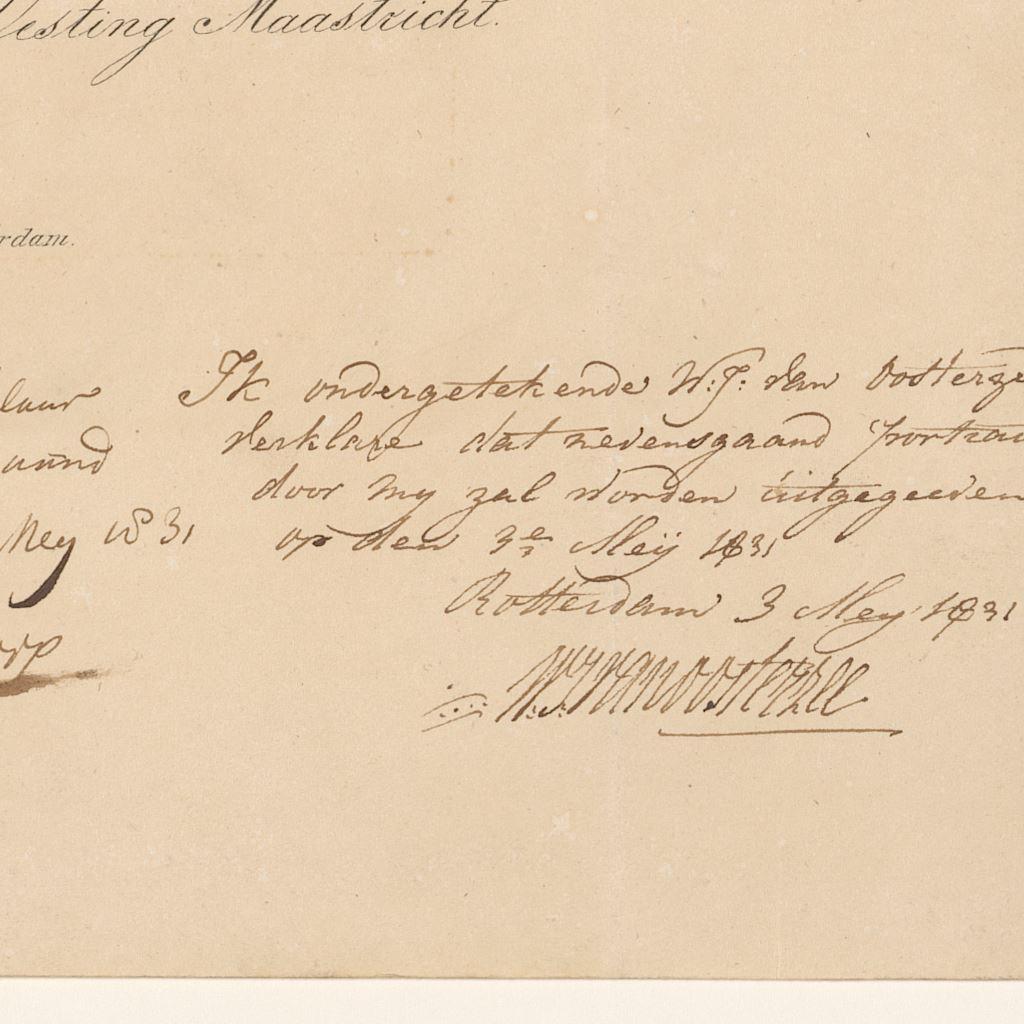 Vesting Maastricht.
rdam.
laar
Ik ondergetekende W: J: van Oosterze
Verklare dat nevensgaand portrai
door my zal worden uitgegeeven
Mey 1831
op den 3e Meij 1831
Rotterdam 3 Mey 1831
W: J: van oosterzee